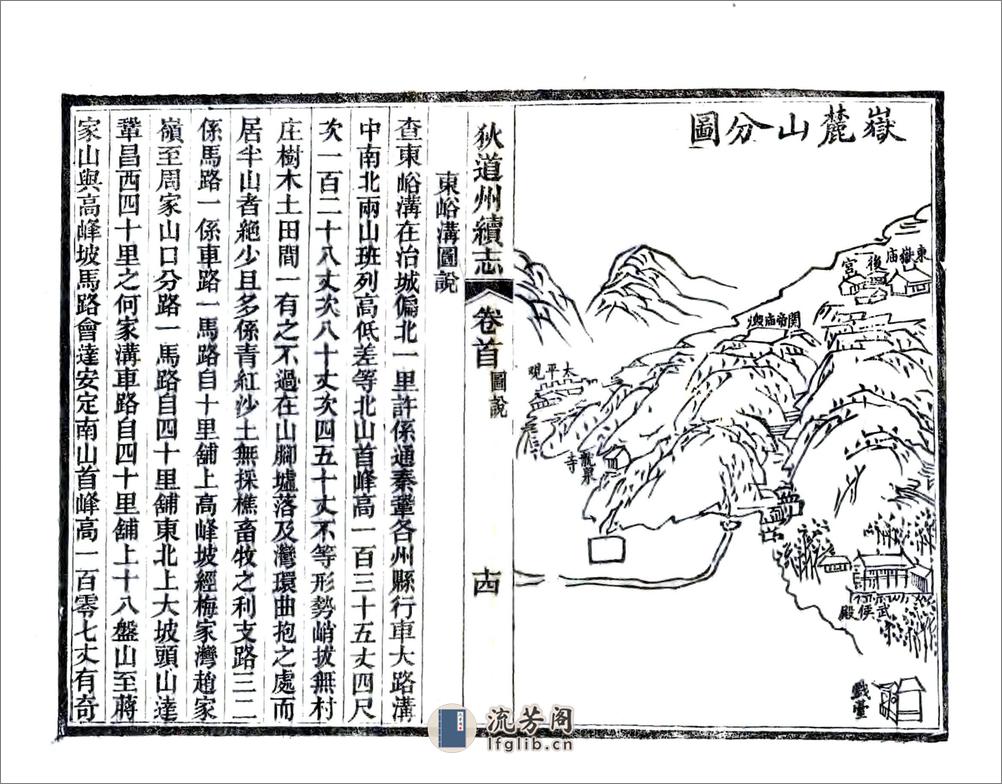 嶽麓山分圖
東嶽廟
後宮
關帝廟
太平觀
龍泉寺
武侯殿
戲臺
狄道州續志
卷首
圖說
十四
東峪溝圖說
查東峪溝在治城偏北一里許係通秦鞏各州縣行車大路溝
中南北兩山班列高低差等北山首峰高一百三十五丈四尺
次一百二十八丈次八十丈次四五十丈不等形勢峭拔無村
庄樹木土田間一有之不過在山腳墟落及灣環曲抱之處而
居半山者絶少且多係青紅沙土無採樵畜牧之利支路三二
係馬路一係車路一馬路自十里舖上高峰坡經梅家灣趙家
嶺至周家山口分路一馬路自四十里舖東北上大坡頭山達
鞏昌西四十里之何家溝車路自四十里舖上十八盤山至蔣
家山與高峰坡馬路會達安定南山首峰高一百零七丈有奇
流芳阁
lfglib.cn